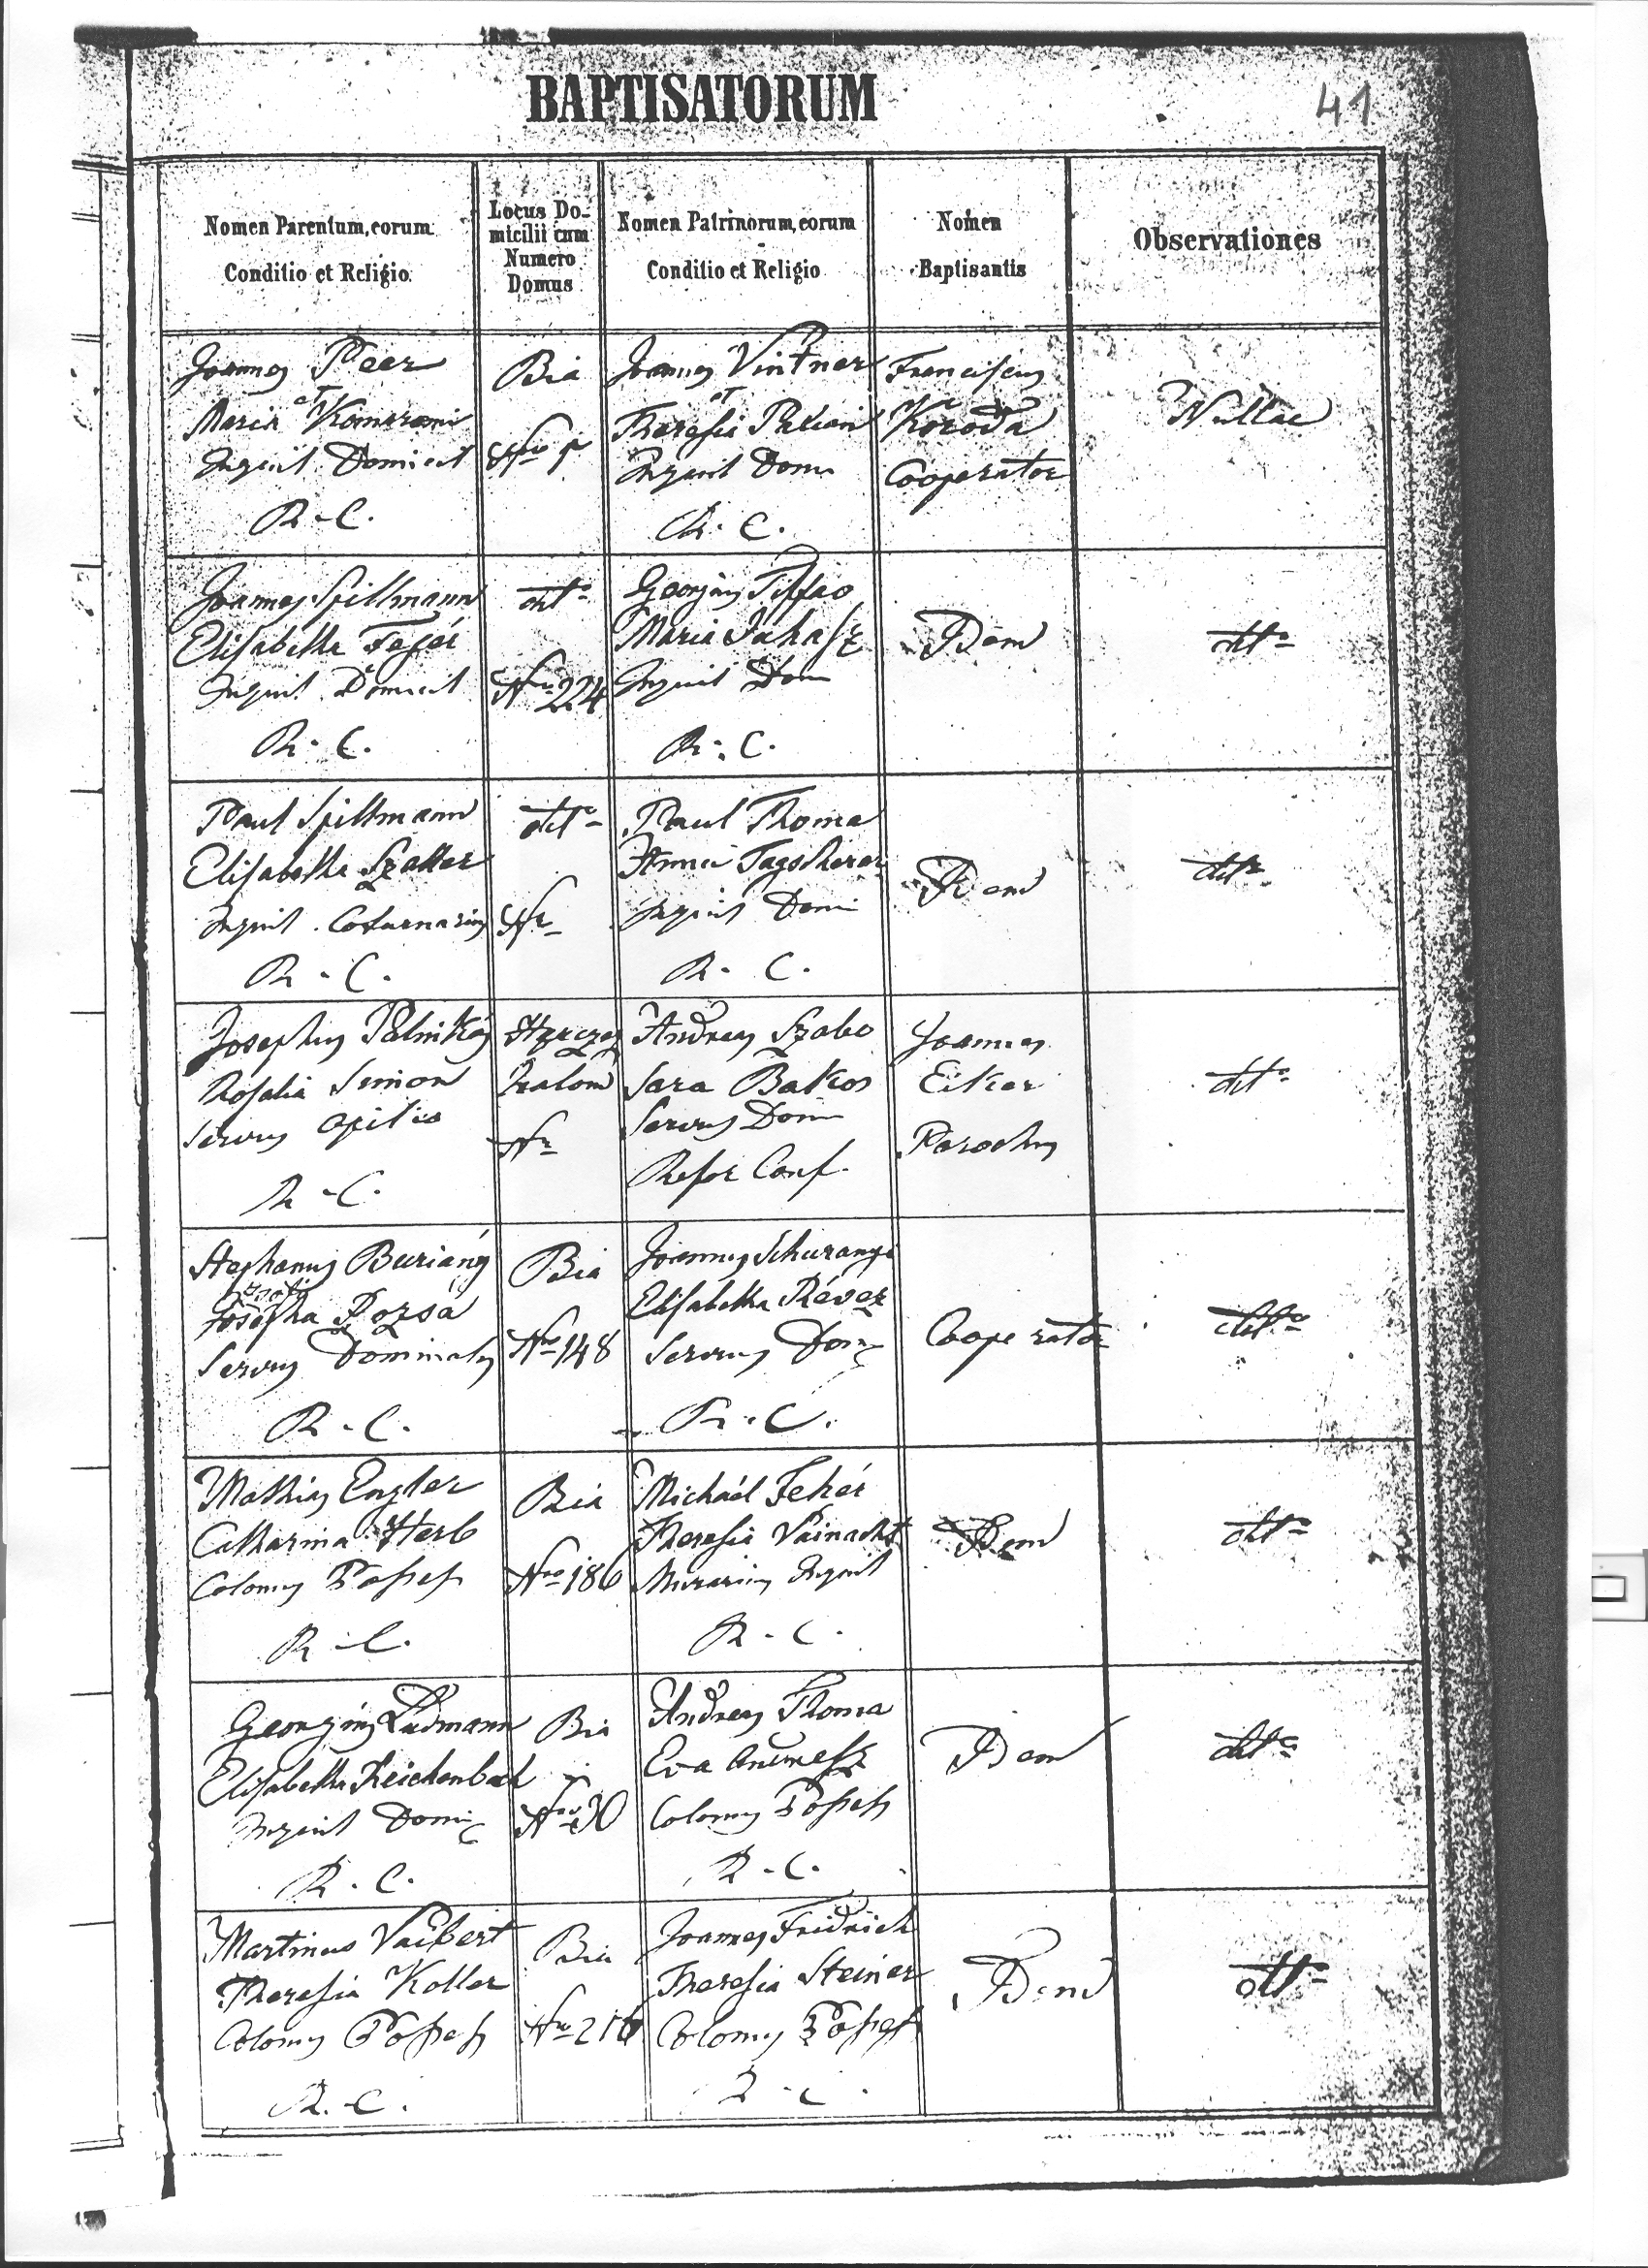 BAPTISATORUM
41
Nomen Parentum, eorum
Conditio et Religio.
Locus Do-
micilii cum
Numero
Domus
Nomen Patrinorum, eorum
Conditio et Religio
Nomen
Baptisantis
Observationes
Joannes Peer
et
Maria
Inquil. Domicil
R. C.
Bia
Joannes Vintner
et
Theresia
Inquil Dom
R. C.
Franciscus
Koroda
Cooperator
Nullae
Joannes Spillmann
Elisabetha Fejér
Inquil. Domicil
R. C.
dtto
Nro 224
Georgius
Maria Juhasz
Inquil Dom
R. C.
Idem
dtto
Paul Spillmann
Elisabetha
Inquil. Coturnarius
R. C.
dtto
Nr
Paul Thoma
Anna Tagscherer
Inquil Domi
R. C.
Idem
dtto
Josephus
Rosalia Simon
Servus opilio
R. C.
Nr
Andreas Szabo
Sara Bakos
Servus Dom
Refor Conf.
Joannes
Eiker
Parochus
dtto
Stephanus Buriány
Josepha Dozsa
Servus Dominalis
R. C.
Bia
Nro 148
Joannes Schuranyi
Elisabetha Révez
Servus Dom
R. C.
Cooperator
dtto
Mathias Engler
Catharina Herb
Colonus Possess
R. C.
Bia
Nro 186
Michaél Fehér
Theresia Vainacht
Murarius Inquil
R. C.
Idem
dtto
Georgius Ludmann
Elisabetha Reichenbach
Inquil Domi
R. C.
Bia
Nro 30
Andreas Thoma
Eva
Colonus Possess
R. C.
Idem
dtto
Martinus Vaibert
Theresia Koller
Colonus Possess
R. C.
Bia
Nro 216
Joannes Fridrich
Theresia Steiner
Colonus Possess
R. C.
Idem
dtto